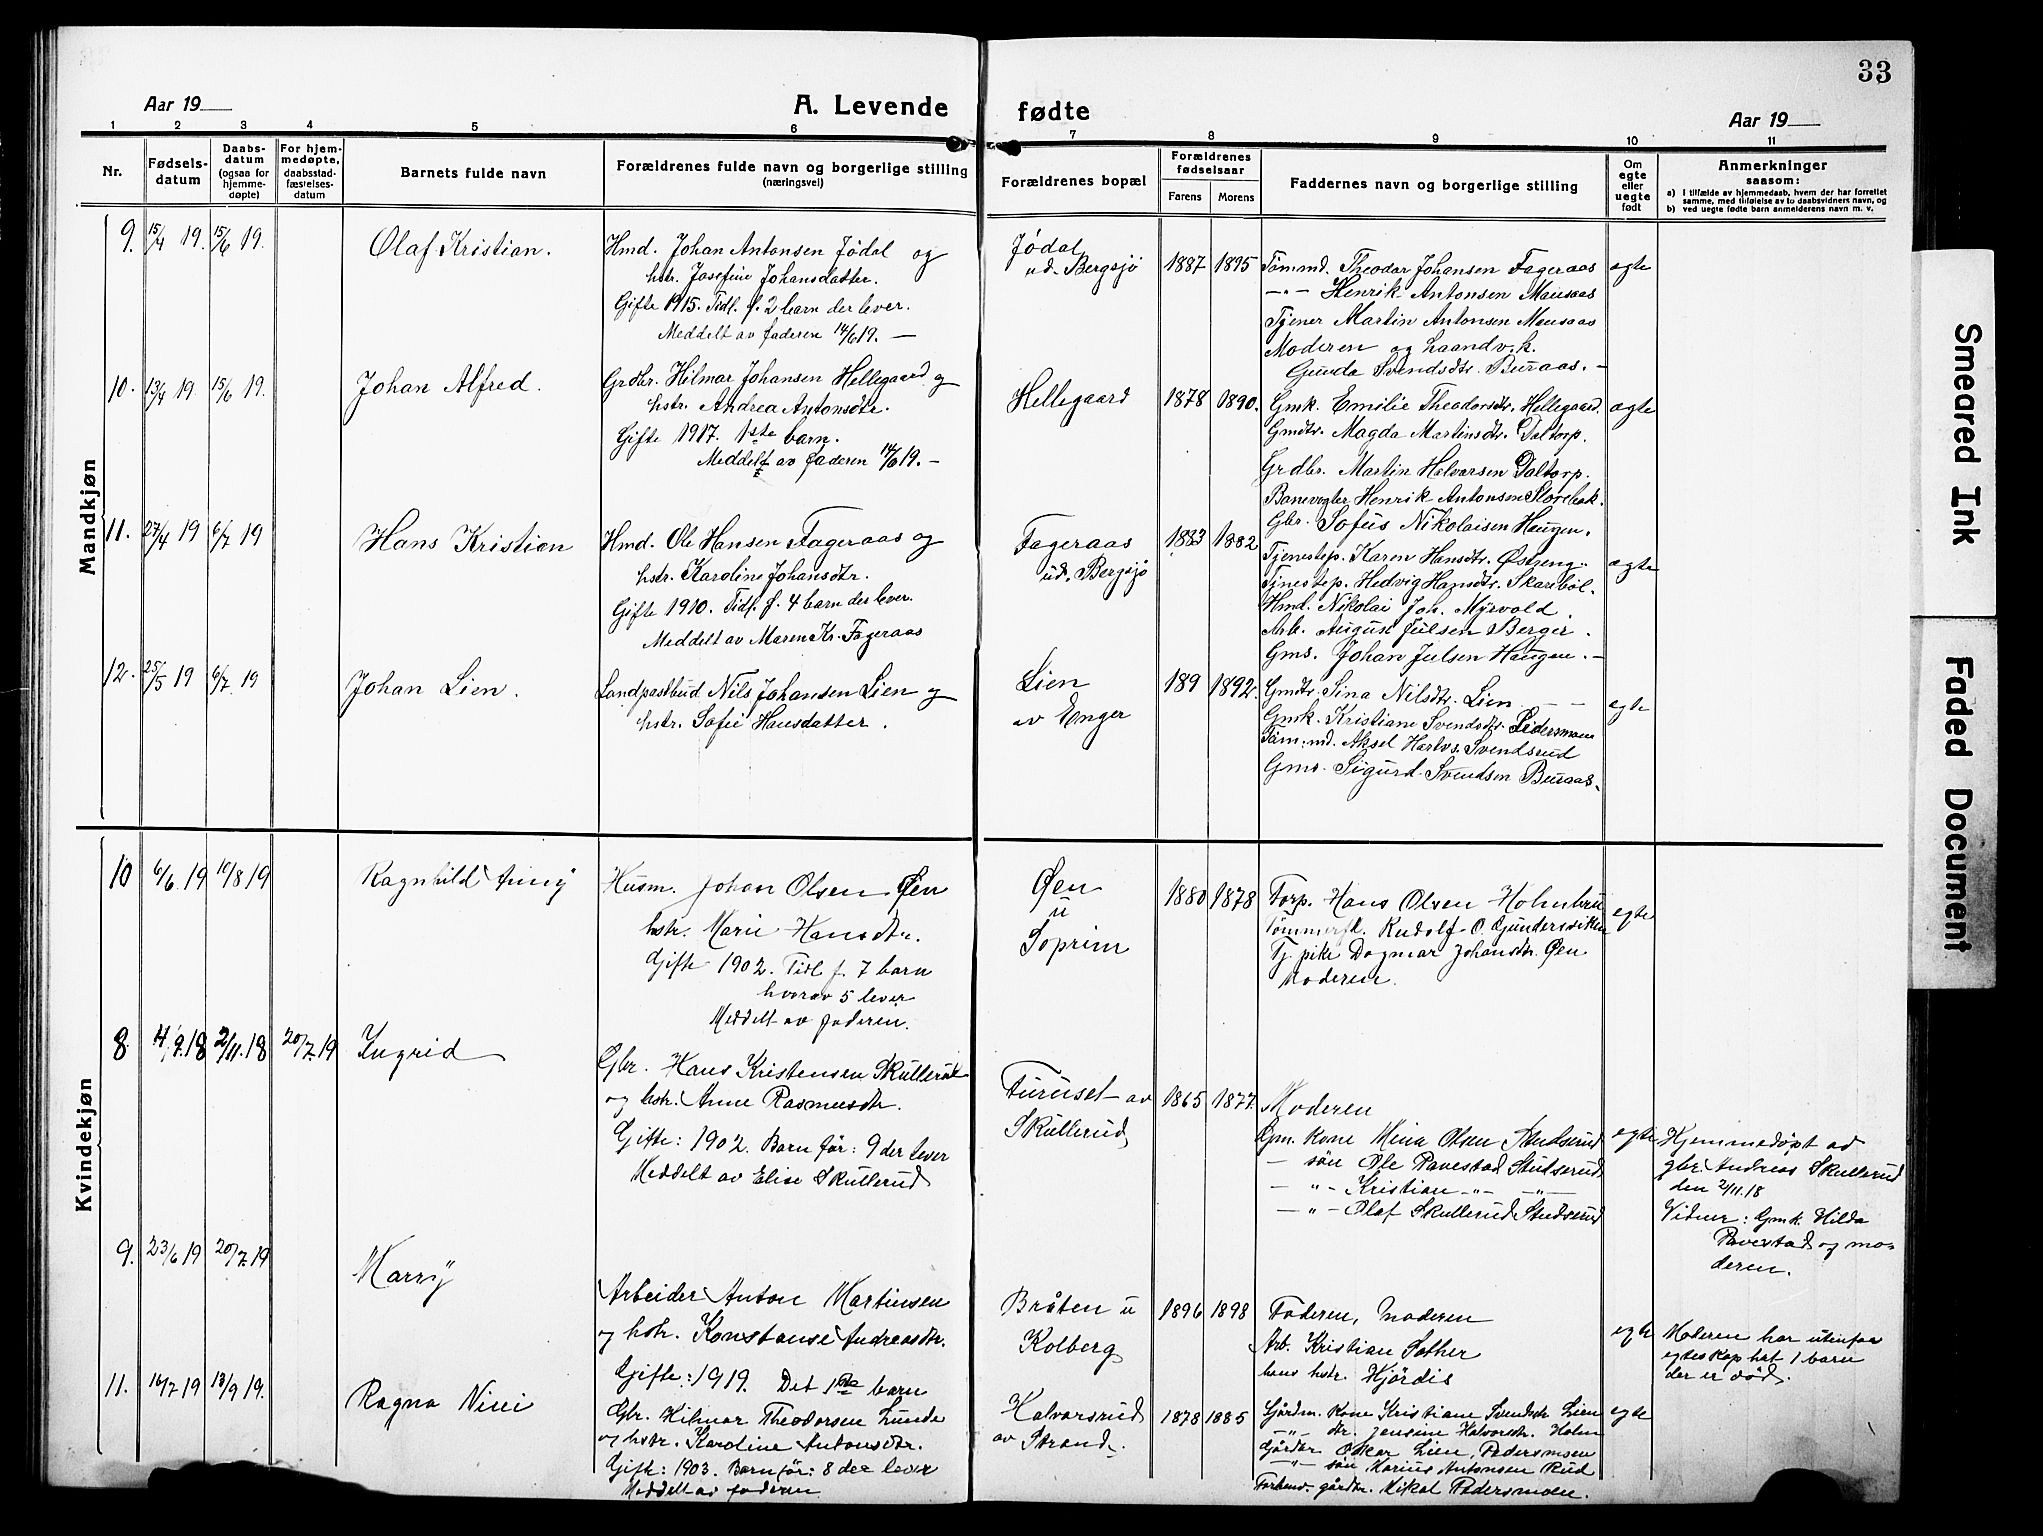 33
Aar 19
A. Levende fødte
Aar 19
1 2 3 4 5 6 7 8 9 10 11
Nr.
Fødsels-
datum
Daabs-
datum
(ogsaa for
hjemme-
døpte)
For hjem-
medøpte,
daabsstad-
fæstelses-
datum
Barnets fulde navn
Forældrenes fulde navn og borgerlige stilling
(næringsvei)
Forældrenes bopæl
Forældrenes
fødselsaar
Farens Morens
Faddernes navn og borgerlige stilling
Om
egte
eller
uegte
født
Anmerkninger
saasom:
a) I tilfælde av hjemmedaab, hvem der har forrettet
samme, med tilføielse av to daabsvidners navn, og
b) ved uegte fødte barn anmelderens navn m. v.
Mandkjøn
9. 15/4 19. 15/6 19.
Olaf Kristian.
Hmd. Johan Antonsen Jödal og
hstr. Josefine Johansdatter.
Gifte 1915. Tidl. f. 2 barn der lever.
Meddelt av faderen 14/6 19. —
Jödal
ud. Bergsjö
1887 1895
Töm.md. Theodor Johansen Fageraas
— " — Henrik Antonsen Mausaas
Tjener Martin Antonsen Mausaas
Moderen og haandv.k.
Gunda Svendsdtr. Buraas. —
ægte
10. 13/4 19. 15/6 19.
Johan Alfred.
Grdbr. Hilmar Johansen Hellegaard og
hstr. Andrea Antonsdtr.
Gifte 1917. 1ste barn.
Meddelt av faderen 14/6 19. —
Hellegaard
1878 1890.
Gmk. Emilie Theodorsdtr. Hellegaard.
Gmdtr. Magda Martinsdtr. Taltorp.
Grdbr. Martin Halvorsen Taltorp.
Banevogter Henrik Antonsen Storebak.
Gbr. Sofus Nikolaisen Haugen.
ægte
11. 27/4 19 6/7 19
Hans Kristian
Hmd. Ole Hansen Fageraas og
hstr. Karoline Johansdtr.
Gifte 1910. Tidl. f. 4 barn der lever.
Meddelt av Maren Kr. Fageraas
Fageraas
ud. Bergsjö
1883 1882
Tjenestep. Karen Hansdtr. Østeng.
Tjnestep. Hedvig Hansdtr. Skariböl.
Hmd. Nikolai Joh. Myrvold.
Arb. August Julsen Berger.
Gms. Johan Julsen Haugen. —
ægte
12. 25/5 19 6/7 19
Johan Lien.
Landpostbud Nils Johansen Lien og
hstr. Sofie Hansdatter.
Lien
av Enger
189 1892.
Gmdtr. Sina Nilsdtr. Lien — —
Gmk. Kristiane Svendsdtr. Pedersmoen
Töm.md. Aksel Harlvs. Svendsrud
Gms. Sigurd Svendsen Buraas.
egte
Kvindekjøn
10 6/6 19 10/8 19
Ragnhild Anny
Husm. Johan Olsen Øen
hstr. Marie Hansdtr.
Gifte 1902. Tidl f. 7 barn
hvorav 5 lever
Meddelt av faderen.
Øen
u
Soprim
1880 1878
Forp. Hans Olsen Holmbru
Tømmerfl. Rudolf O. Gundersviken
Tj. pike Dagmar Johansdtr. Øen
Moderen.
egte
8. 4/9. 18 2/11. 18 20/7. 19
Ingrid
Gbr. Hans Kristensen Skullerud
og hstr. Anne Rasmusdtr.
Gifte: 1902. Barn før: 9 der lever
Meddelt av Elise Skullerud
Furuset av
Skullerud
1865 1877.
Moderen
Gm. kone Mina Olsen Studserud
— søn Ole Pavestad Studserud
— " — Kristian — " — — " —
— " — Olaf Skullerud Studserud
egte
Hjemmedøpt av
gbr. Andreas Skullerud
den 2/11. 18
Vidner: Gmk. Hilda
Pavestad og mo-
deren.
9. 23/6 19 20/7. 19
Marry
Arbeider Anton Martinsen
og hstr. Konstanse Andreasdtr.
Gifte: 1919. Det 1ste barn
Bråten u
Kolberg
1896 1898
Faderen, Moderen
Arb. Kristian Sother
hans hstr. Hjördis
egte
Moderen har utenfor
egteskap hat 1 barn
der er död.
11. 16/7 19 13/9 19.
Ragna Nini
Gbr. Hilmar Theodorsen Lunde
og hstr. Karoline Antonsdtr.
Gifte: 1903. Barn før: 8 der lever
Meddelt av faderen
Halvorsrud
av Strand.
1878 1885
Gårdm. kone Kristiane Svendsdtr Lien
— " — dtr. Jensine Halvorsdtr. Holm
Gårdbr. Oskar Lien, Pedersmoen
— " — søn Marius Antonsen Rud
Forhenv. gårdbr. Mikal Pedersmoen.
egte
Smeared Ink
Faded Document